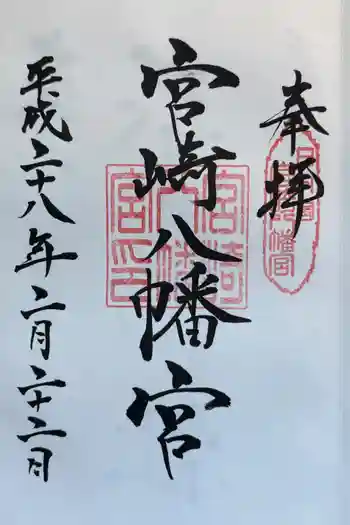 奉拝
宮崎八幡宮
宮崎
八幡
宮印
平成二十八年二月二十二日